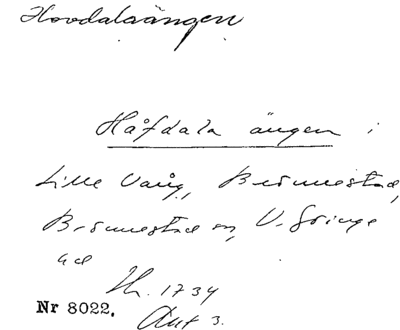 Hovdalaängen
Håfdala ängen i
Lille Vång, Brönnestad,
Brönnestad sn, V. Göinge
hd
Hr. 1734
Akt 3.
Nr 8022.